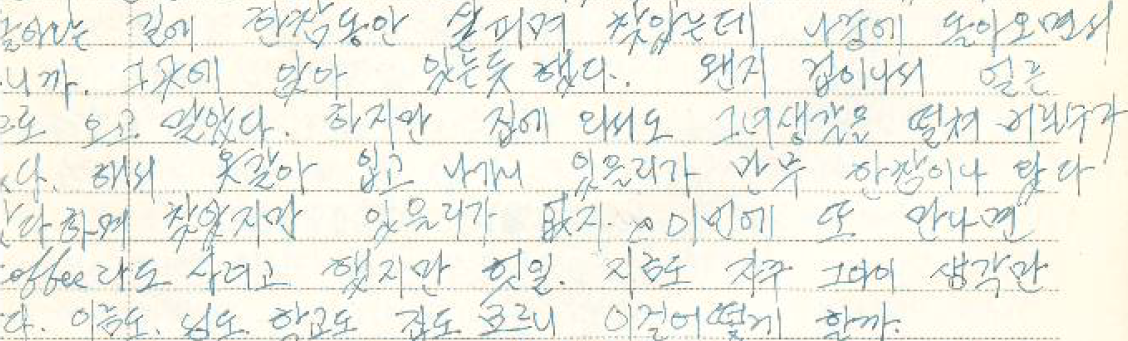 돌아가는 길에 한참동안 살피며 찾았는데 나중에 돌아오면서
니까. 그곳에 앉아 있는듯 했다. 왠지 겁이나서 얼른
으로 오고 말았다. 하지만 집에 와서도 그녀생각을 떨쳐 버릴수가
다. 해서 옷갈아 입고 나가니 있을리가 만무 한참이나 왔다
갔다하며 찾았지만 있을리가 없지. 이번에 또 만나면
coffee라도 사려고 했지만 헛일. 지금도 자꾸 그녀 생각만
다. 이름도. 성도. 학교도 집도 모르니 이걸어떻게 할까.